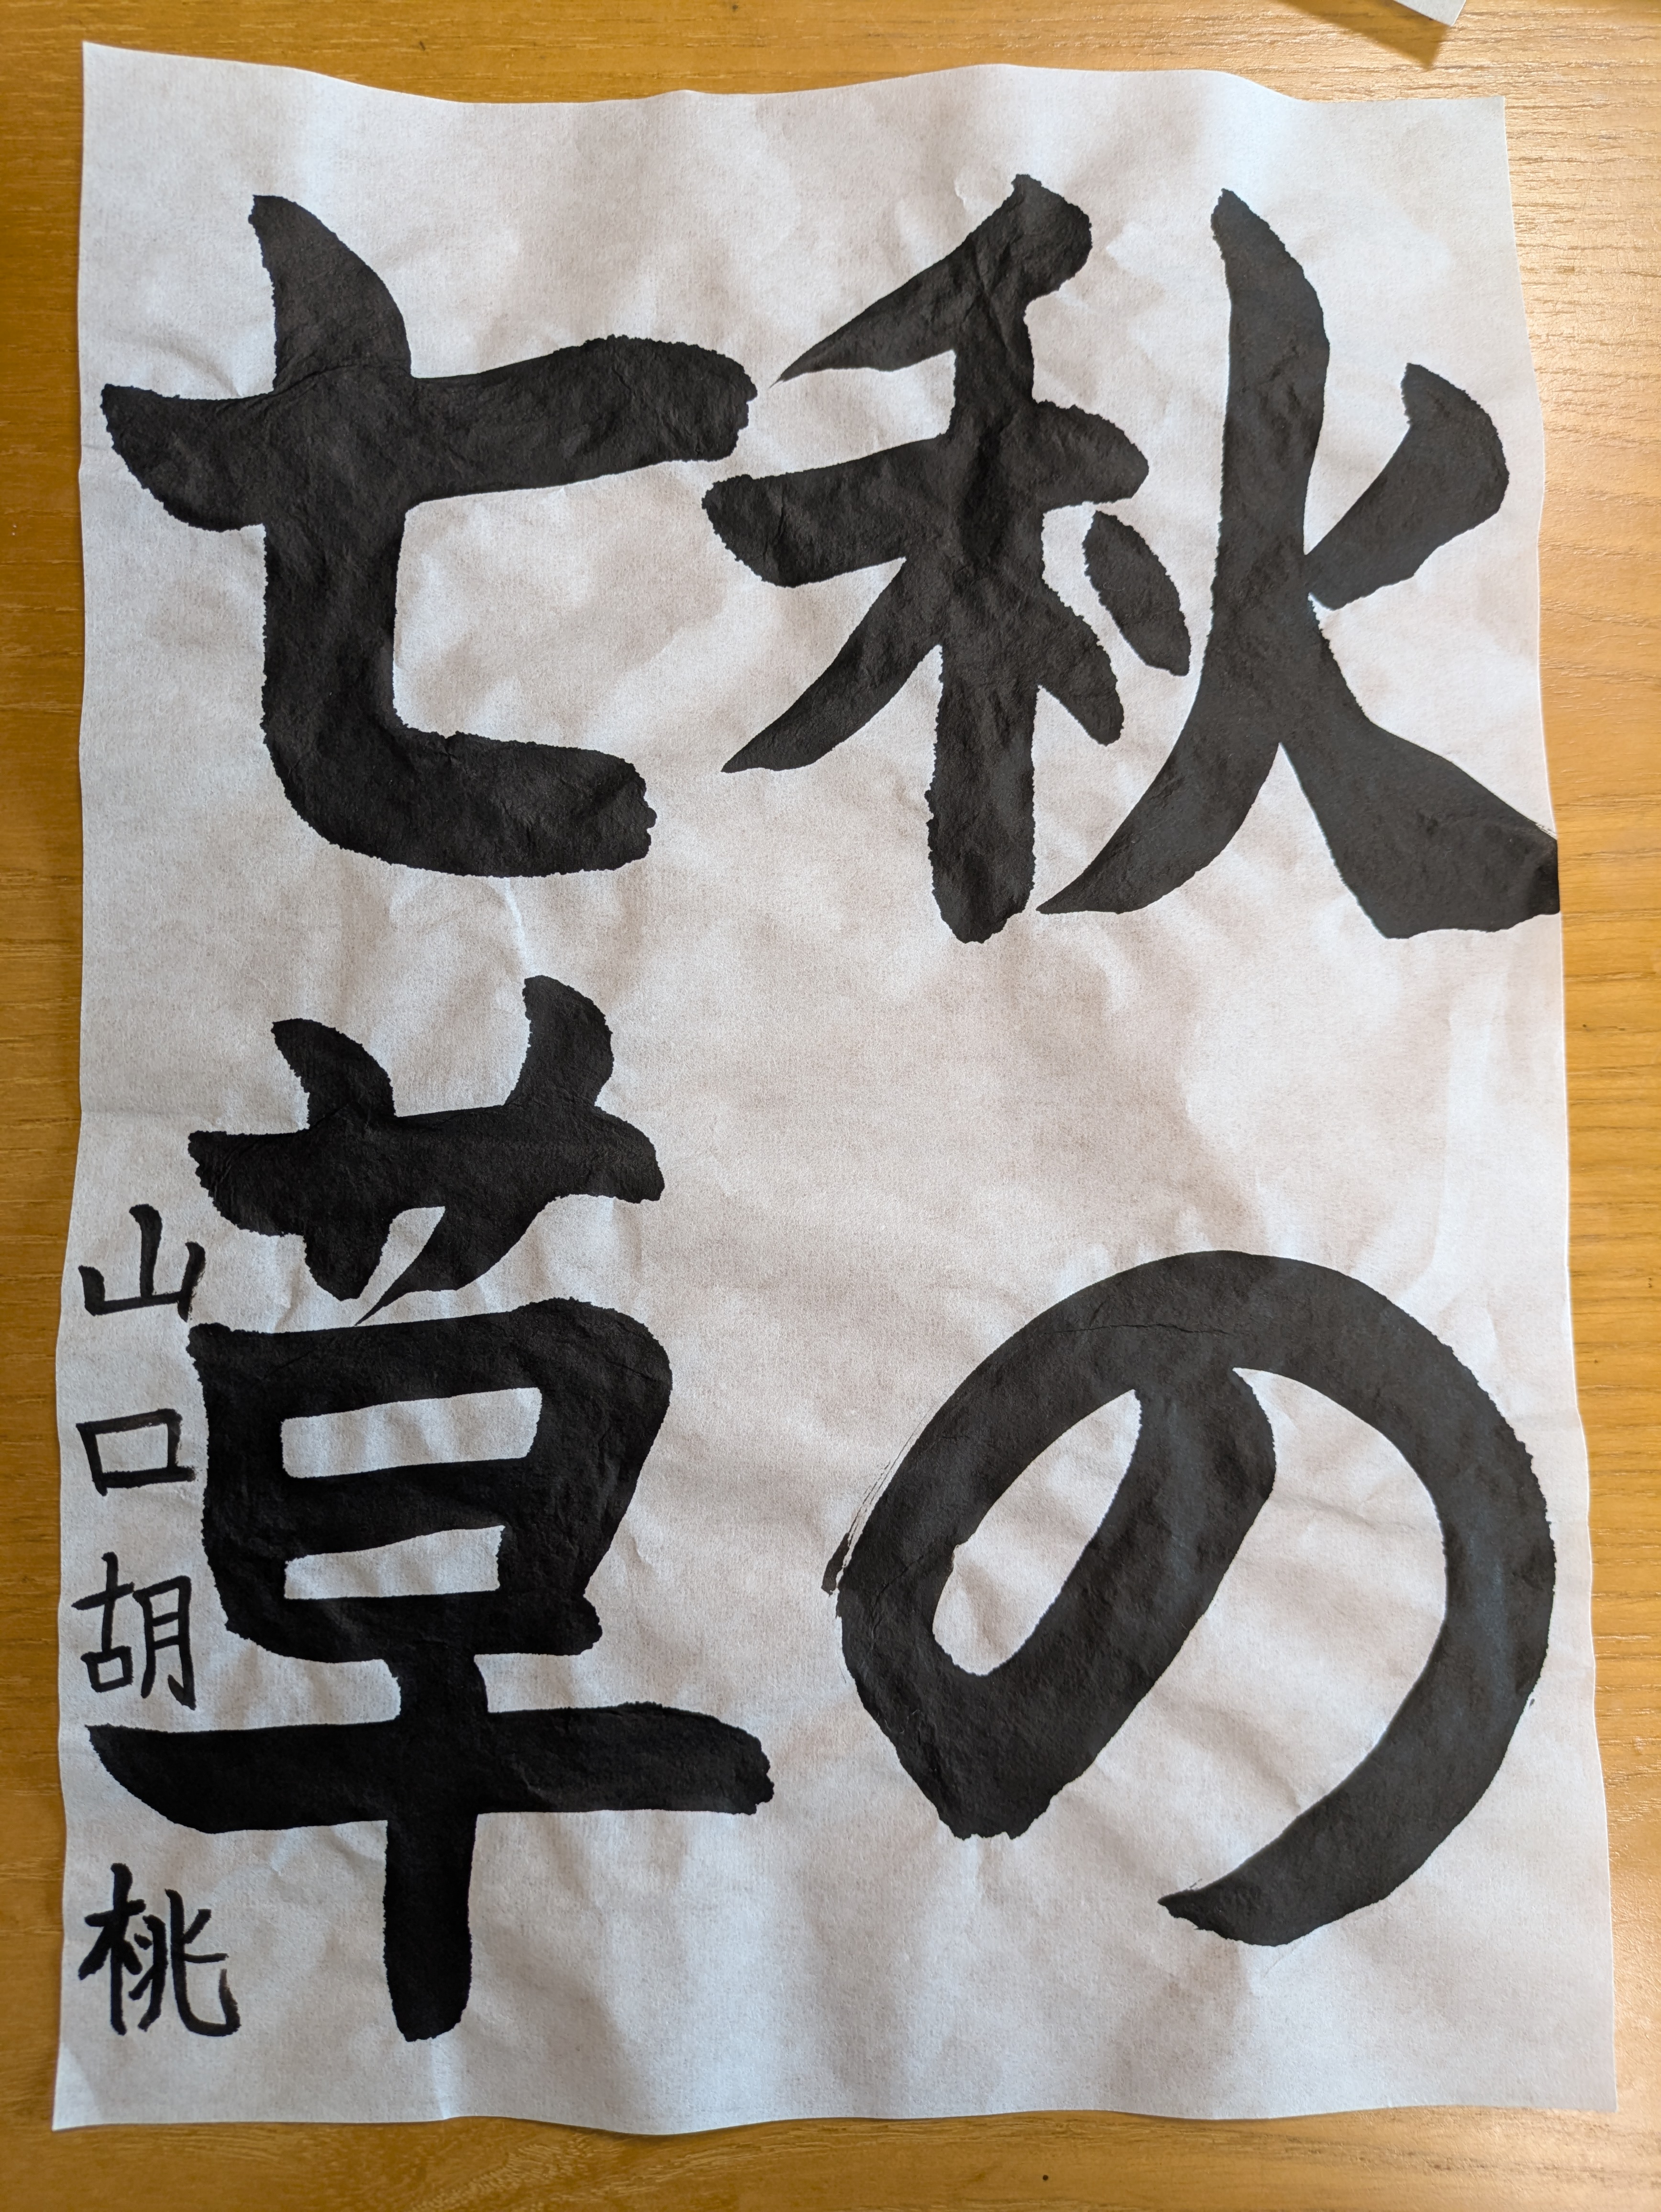 秋の
七草
山口胡桃